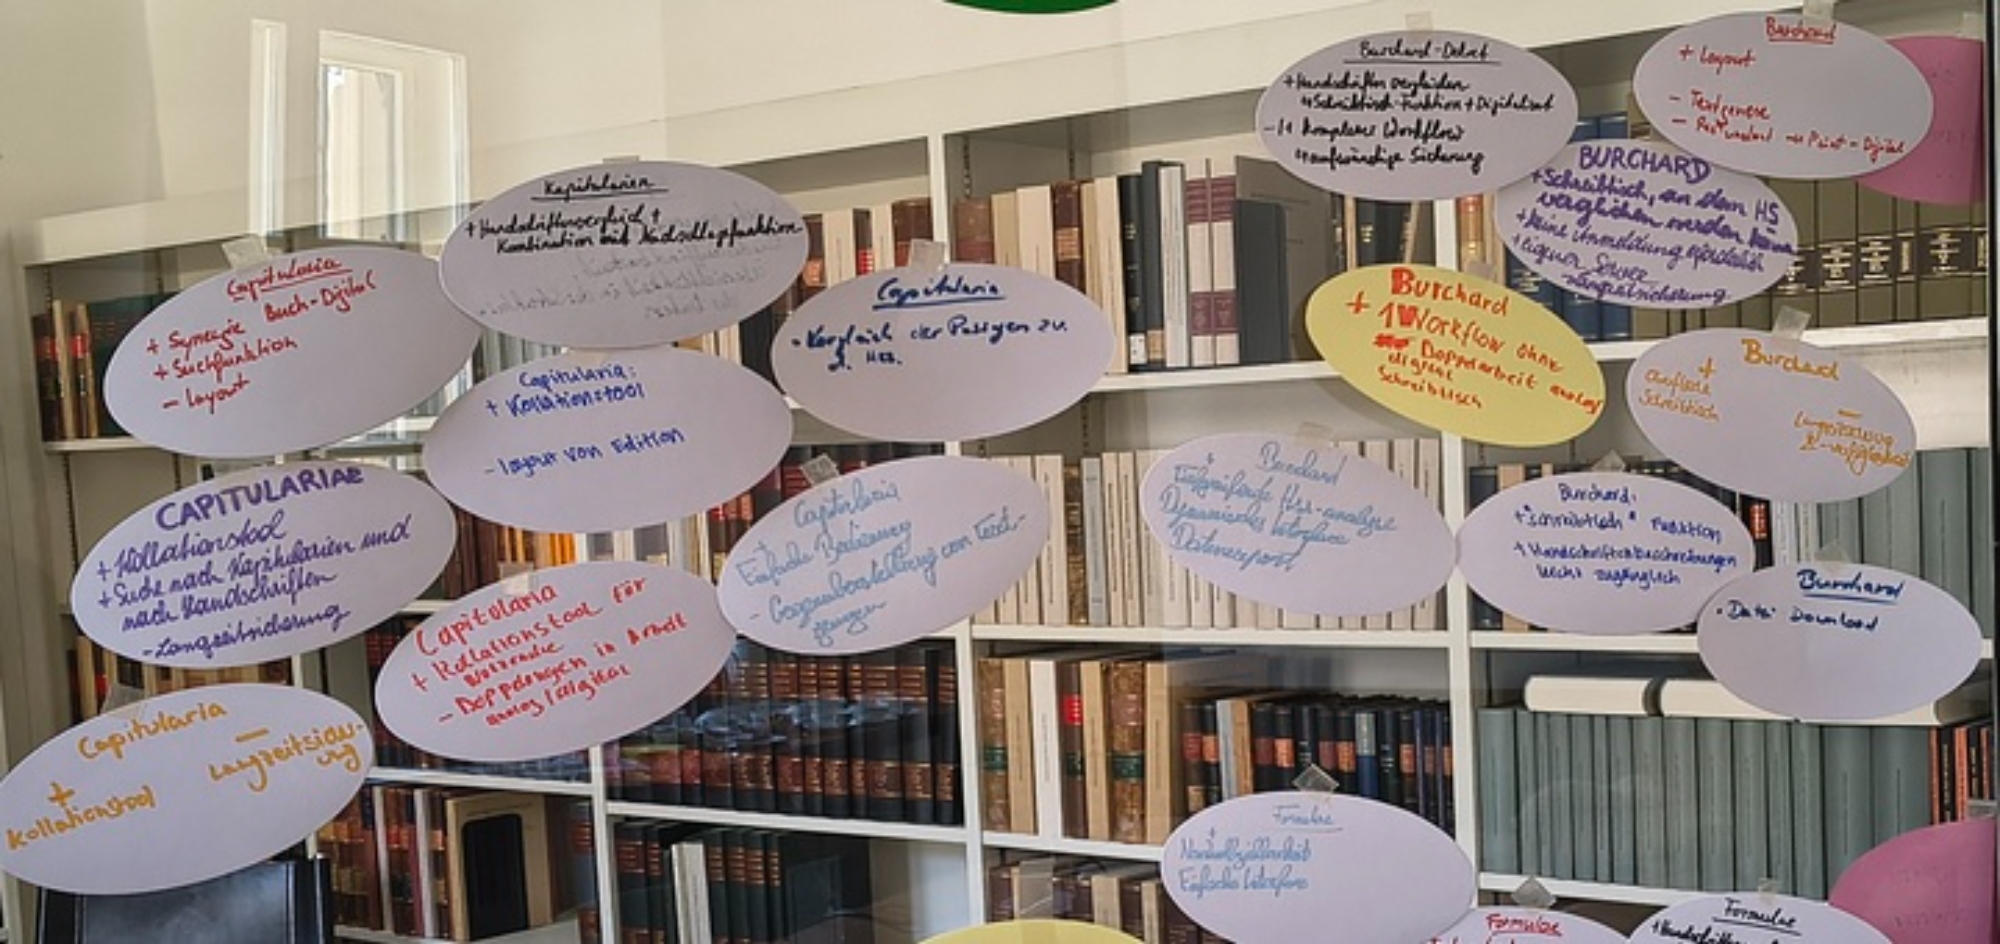 Capitularia
+ Synergie Buch-Digital
+ Suchfunktion
- Layout
Kapitularien
+ Handschriftenvergleich +
Kombination mit Nachschlagefunktion
Capitularia
Vergleich der Passagen zw.
d. Hss.
Capitularia:
+ Kollationstool
- Layout von Edition
CAPITULARIAE
+ Kollationstool
+ Suche nach Kapitularien und
nach Handschriften
- Langzeitsicherung
Capitularia
Einfache Bedienung
- Gegenüberstellung von Text-
zeugen
Capitularia
+ Kollationstool für
- Doppelungen in Arbeit
analog/digital
Capitularia
+
Kollationstool
-
Langzeitsicher-
ung
Burchard-Dekret
+ Handschriften vergleichen
Schreibtisch-Funktion + Digitalisat
komplexer Workflow
aufwändige Sicherung
Burchard
+ Layout
- Textgenese
Print - Digital
BURCHARD
+ Schreibtisch, an dem HS
verglichen werden können
+ keine Anmeldung erforderlich
+ eigener Server
Burchard
+ 1 Workflow ohne
Doppelarbeit analog
digital
Schreibtisch
Burchard
+
Schreibtisch
-
Burchard
+
Tiefgreifende Hss-analyse
Dynamisches Interface
Datenexport
Burchard:
+ "Schreibtisch" Funktion
+ Handschriftenbeschreibungen
leicht zugänglich
Burchard
Datei Download
Formulae
+
Einfaches Interface
Formulae
Formulae